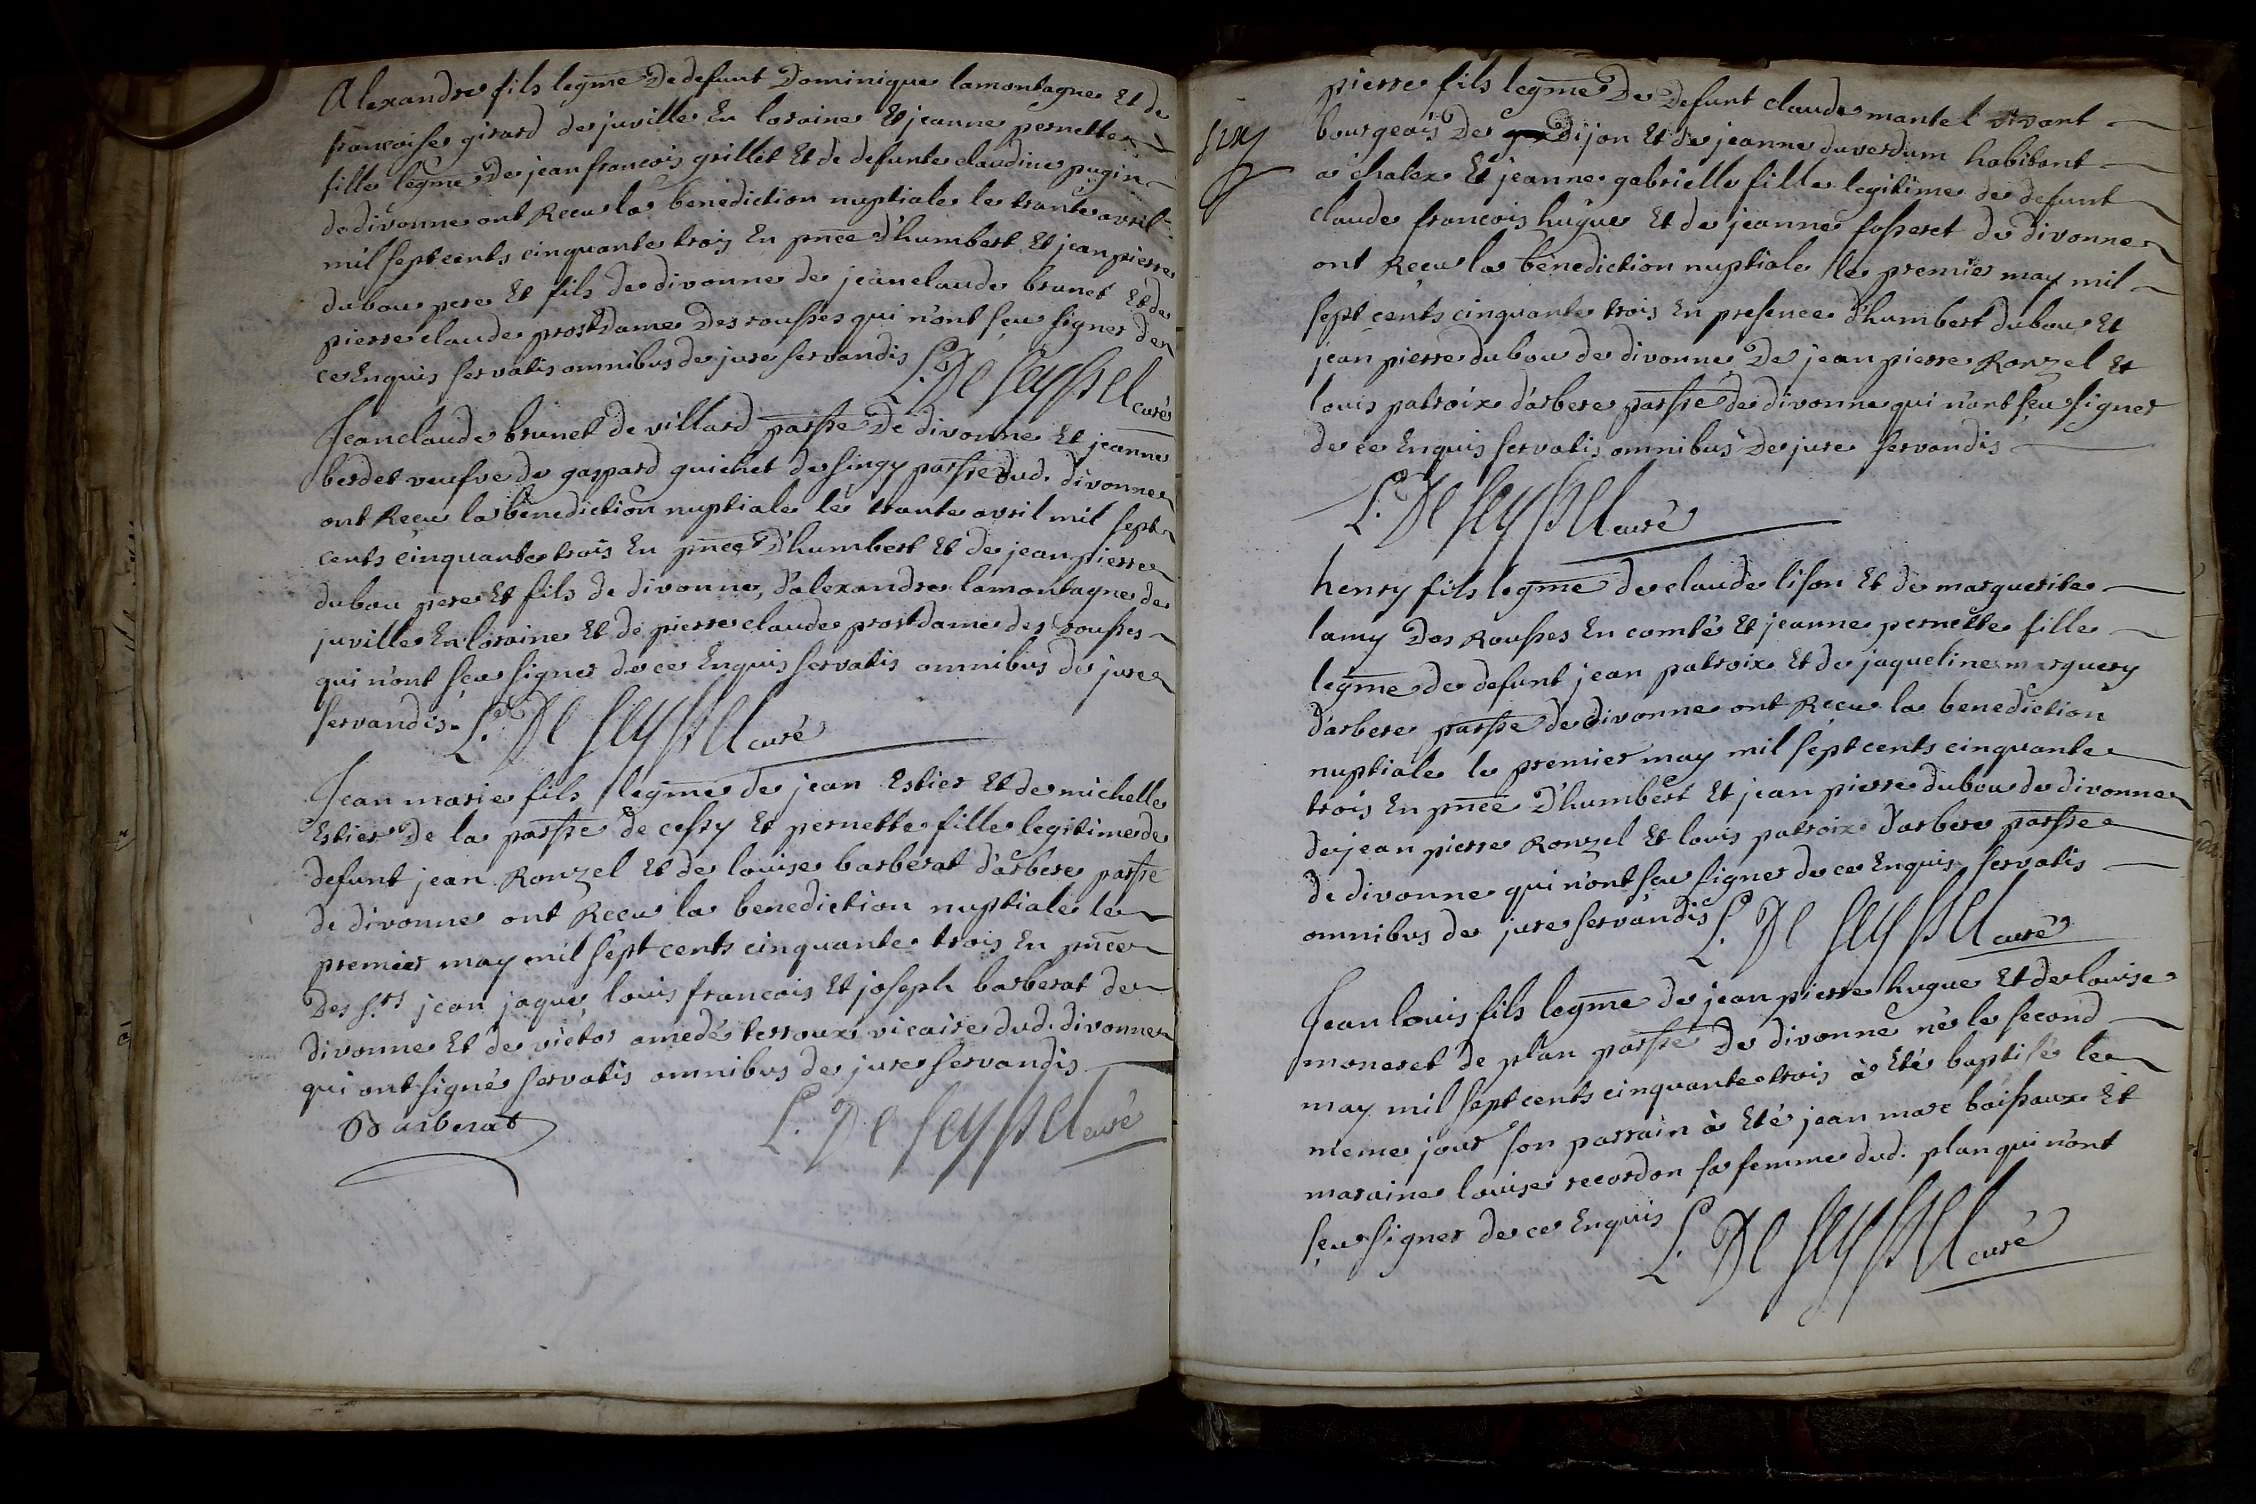 Alexandre fils legme De defunt Dominique lamontagne Et de
francoise girard de juville En loraine Et jeanne pernette
fille legme De jean francois grillet Et de defunte claudine pugin
de divonne ont Receu la benediction nuptiale le trante avril
mil sept cents cinquante trois En pnce d'humbert Et jean pierre
dubou pere Et fils de divonne de jean claude brunet Et de
pierre claude prostdame Des rousses qui n'ont sçeu signer de
ce Enquis servatis omnibus de jure servandis L. De Seyssel curé
Jean claude brunet de villard parsse De divonne Et jeanne
berdet veufve de gaspard guichet de singy parsse dud. divonne
ont Receu la benediction nuptiale le trante avril mil sept
cents cinquante trois En pnce D'humbert Et de jean pierre
dubou pere Et fils de divonne, d'alexandre lamontagne de
juville En loraine Et de pierre claude prostdame des rousses
qui n'ont sçeu signer de ce Enquis servatis omnibus de jure
servandis. L. De Seyssel curé
Jean marie fils legme de jean Estier Et de michelle
Estier De la parsse de cessy Et pernette fille legitime de
defunt jean Ronzel Et de louise barberat d'arbere parsse
de divonne ont Receu la benediction nuptiale le
premier may mil sept cents cinquante trois En pnce
Des s.rs jean jaques louis francois Et joseph barberat de
divonne Et de victor amedé terroux vicaire dud. divonne
qui ont signé servatis omnibus de jure servandis
Barberat L. De Seyssel curé
pierre fils legme De Defunt claude mantel vivant
bourgeois De Dijon Et de jeanne duverdum habitant
a chalex Et jeanne gabrielle fille legitime de defunt
claude francois hugue Et de jeanne fosseret de divonne
ont Receu la benediction nuptiale le premier may mil
sept cents cinquante trois En presence d'humbert dubou Et
jean pierre dubou de divonne De jean pierre Ronzel Et
louis patroix d'arbere parsse de divonne qui n'ont sçeu signer
de ce Enquis servatis omnibus De jure servandis
L. De Seyssel curé
henry fils legme de claude lison Et de marguerite
lamy Des Rousses En comté Et jeanne pernette fille
legme de defunt jean patroix Et de jaqueline marguery
d'arbere parsse de divonne ont Receu la benediction
nuptiale le premier may mil sept cents cinquante
trois En pnce D'humbert Et jean pierre dubou de divonne
de jean pierre Ronzel Et louis patroix d'arbere parsse
de divonne qui n'ont sçeu signer de ce Enquis servatis
omnibus de jure servandis L. De Seyssel curé
Jean louis fils legme de jean pierre hugue Et de louise
moneret de plan parsse De divonne né le second
may mil sept cents cinquante trois à Eté baptisé le
meme jour son parrain à Eté jean marc boissaux Et
maraine louise recordon sa femme dud. plan qui n'ont
sçeu signer de ce Enquis L. De Seyssel curé